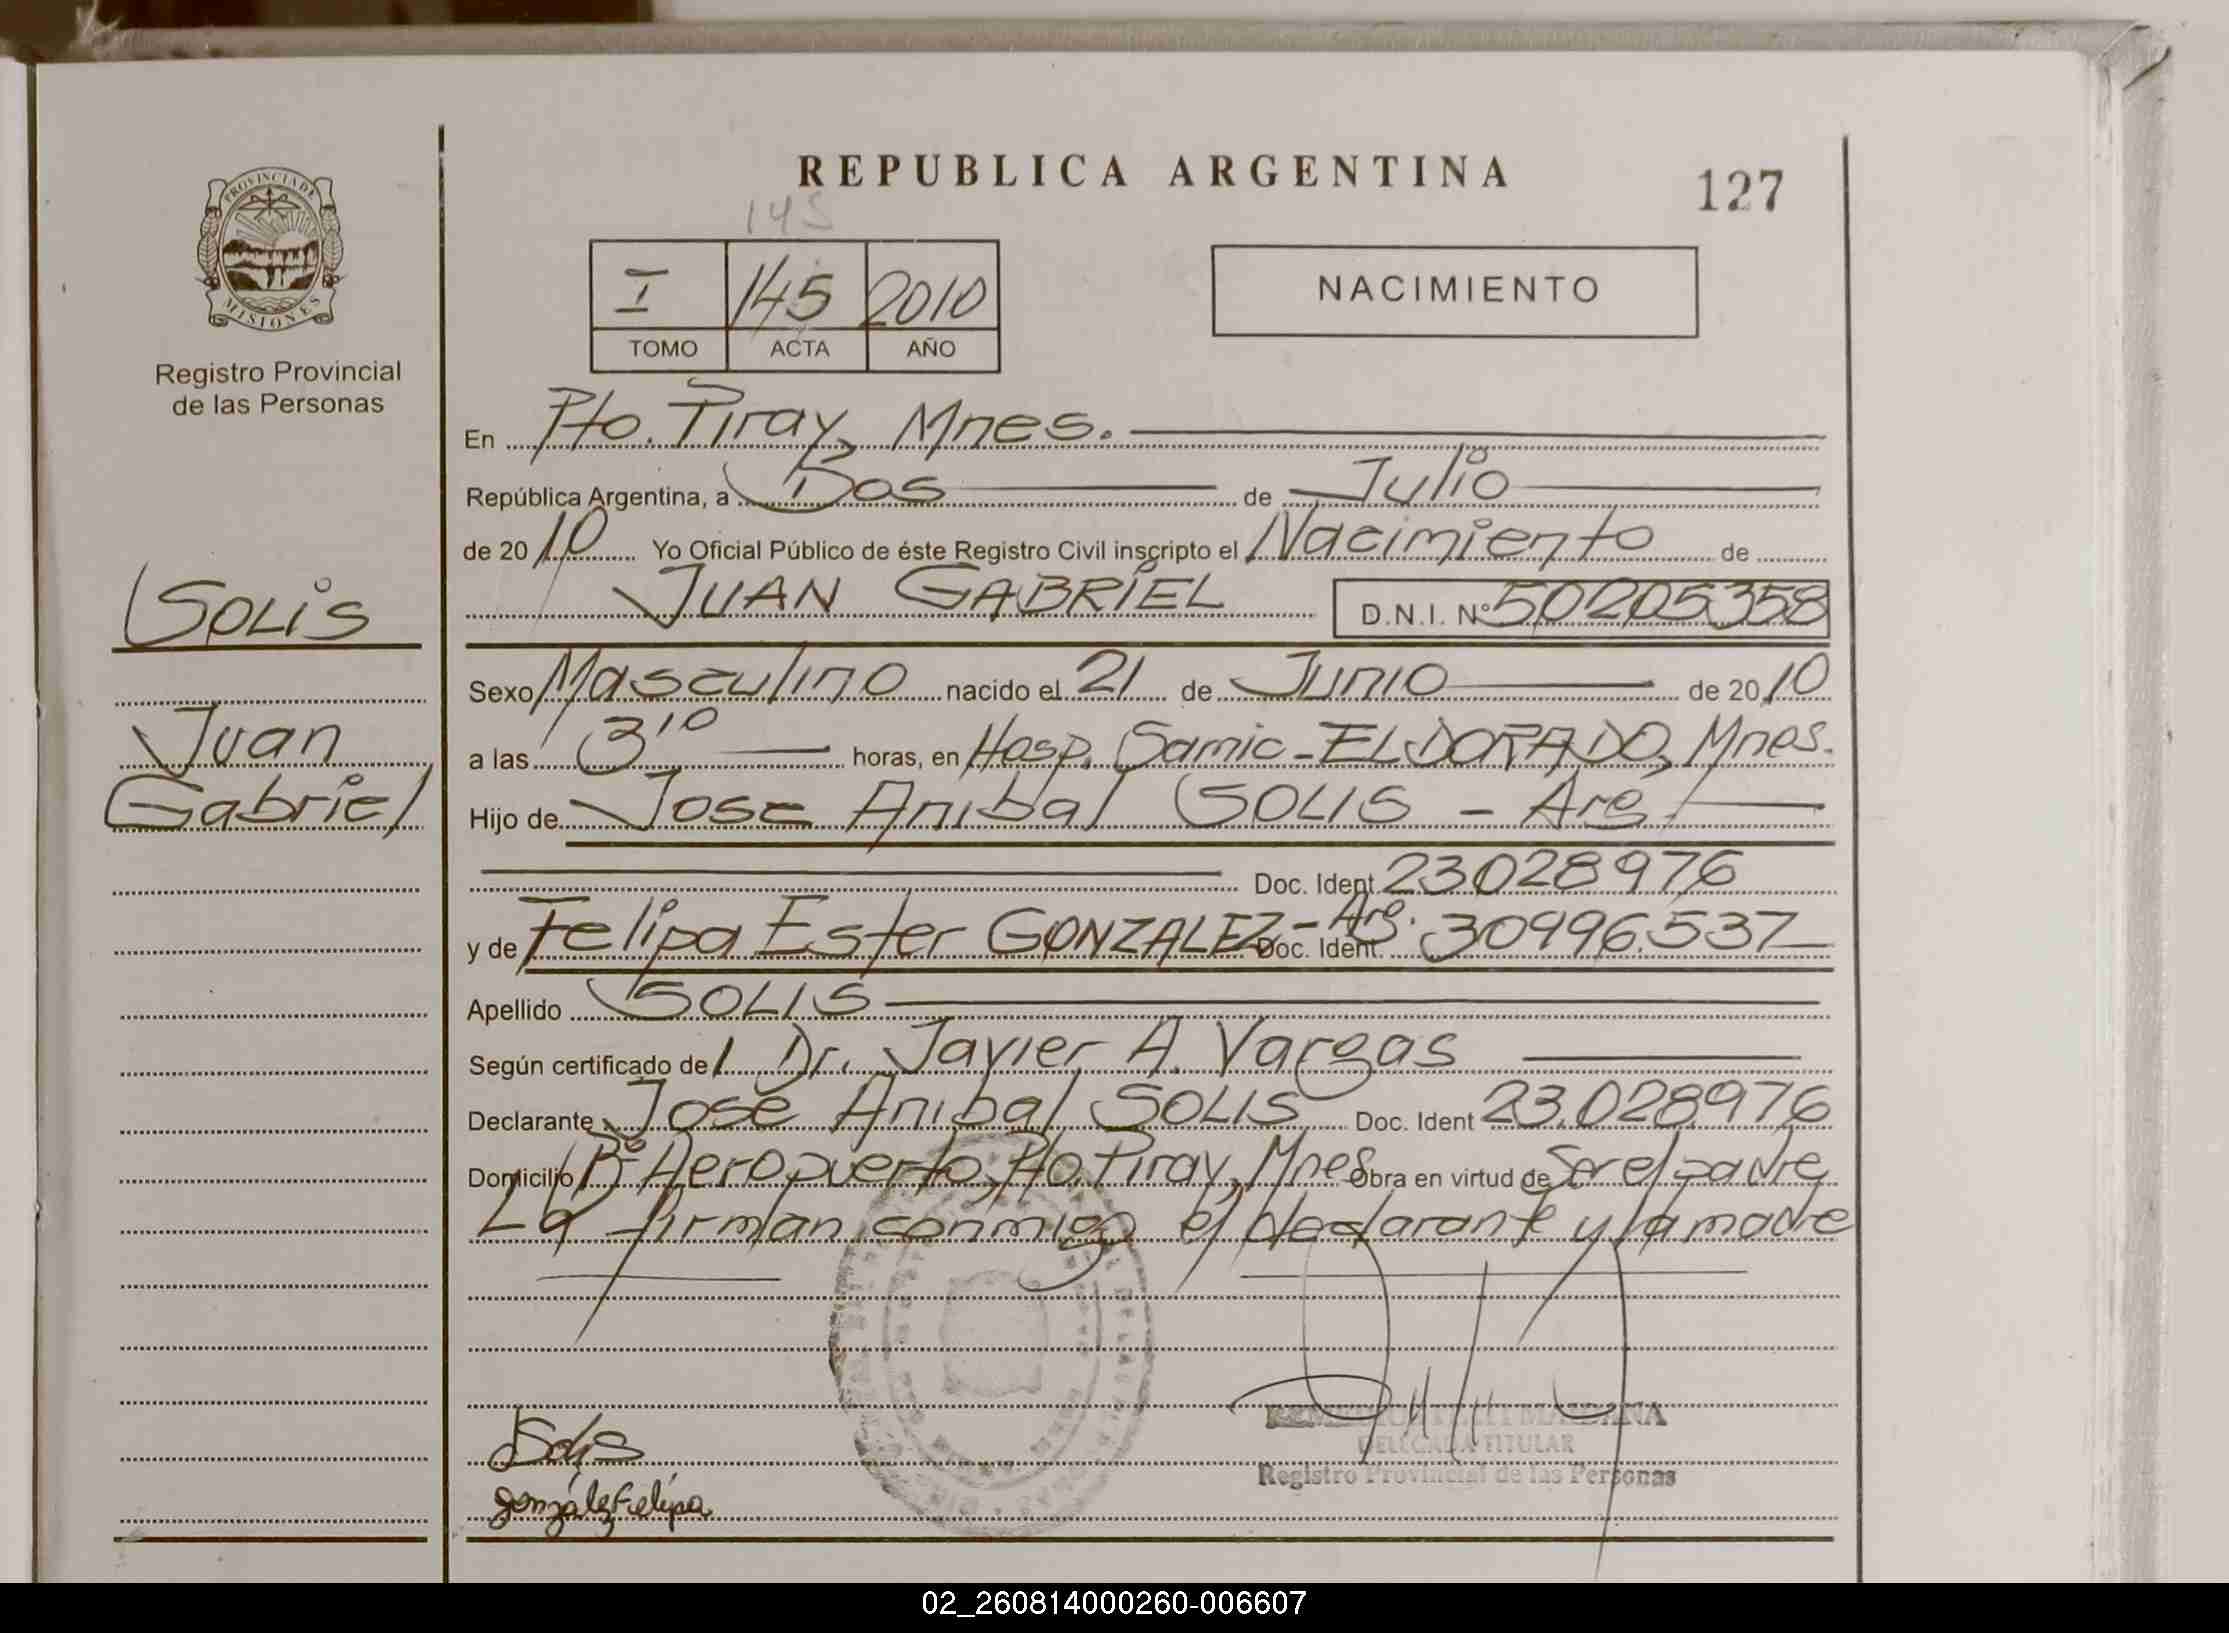 REPUBLICA ARGENTINA
127
145
I 145 2010
TOMO ACTA AÑO
NACIMIENTO
PROVINCIA DE
MISIONES
Registro Provincial
de las Personas
Solis
Juan
Gabriel
En Pto. Piray, Mnes.
República Argentina, a Dos de Julio
de 20 10 Yo Oficial Público de éste Registro Civil inscripto el Nacimiento de
JUAN GABRIEL D.N.I. Nº 50205358
Sexo Masculino nacido el 21 de Junio de 20 10
a las 3¹⁰ horas, en Hosp. Samic - ELDORADO, Mnes.
Hijo de Jose Anibal SOLIS - Arg.
Doc. Ident. 23028976
y de Felipa Ester GONZALEZ - Arg. Doc. Ident. 30996.537
Apellido SOLIS
Según certificado del Dr. Javier A. Vargas
Declarante José Anibal SOLIS Doc. Ident 23.028.976
Domicilio Bº Aeropuerto, Pto. Piray, Mnes Obra en virtud de Ser el padre
La firman conmigo el declarante y la madre
Solis
gonzález Felipa
DELEGADA TITULAR
Registro Provincial de las Personas
02_260814000260-006607